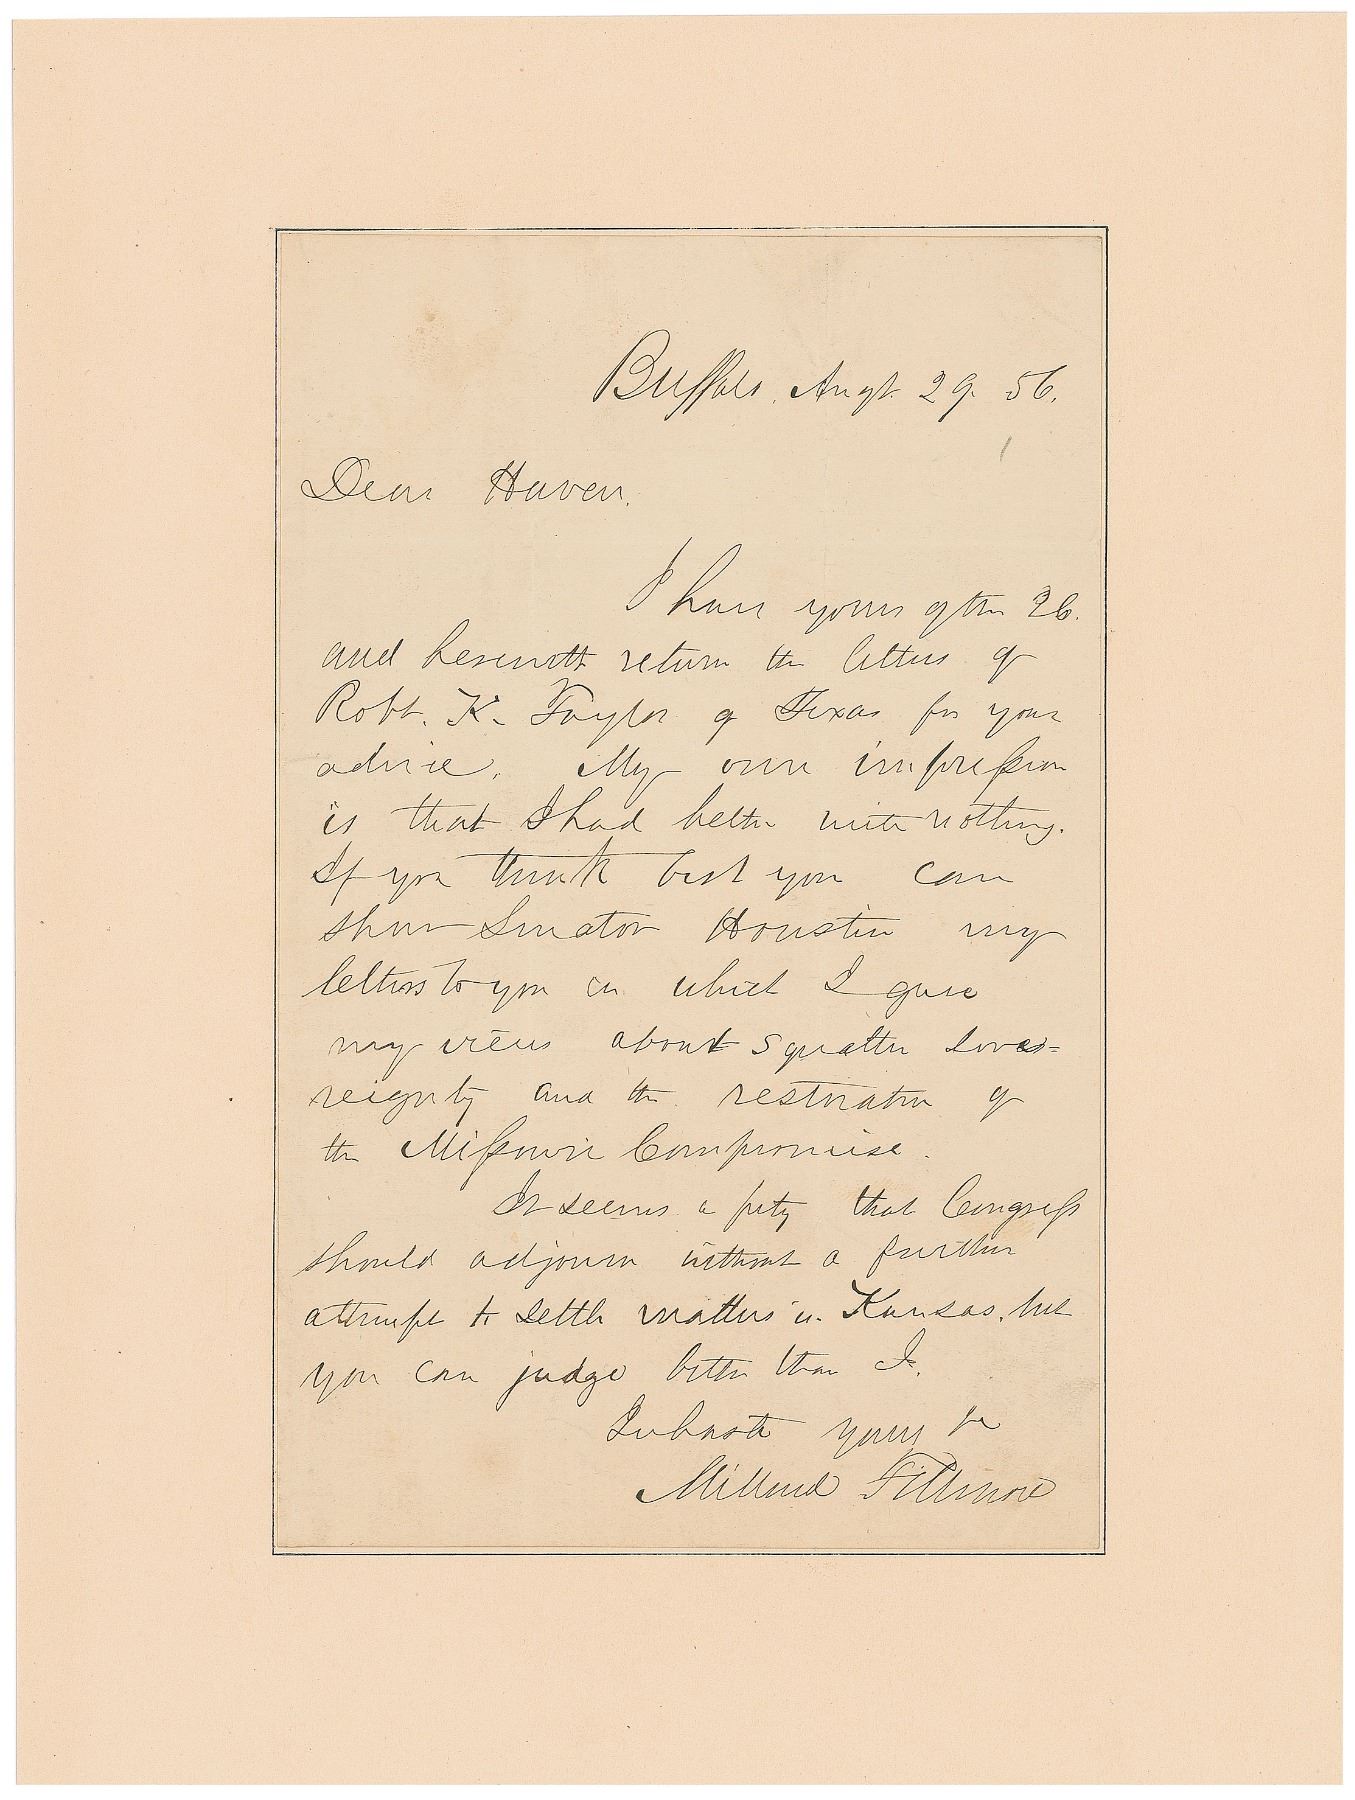 Buffalo. Augt. 29. 56.
Dear Haven.
I have yours of the 26.
and herewith return the letters of
Robt. K. Taylor of Texas for your
advice. My own impression
is that I had better write nothing.
If you think best you can
show Senator Houston my
letters to you in which I gave
my views about squatter sover=
reignty and the restoration of
the Missouri Compromise.
It seems a pity that Congress
should adjourn without a further
attempt to settle matters in Kansas, but
you can judge better than I.
In haste yours &c
Millard Fillmore